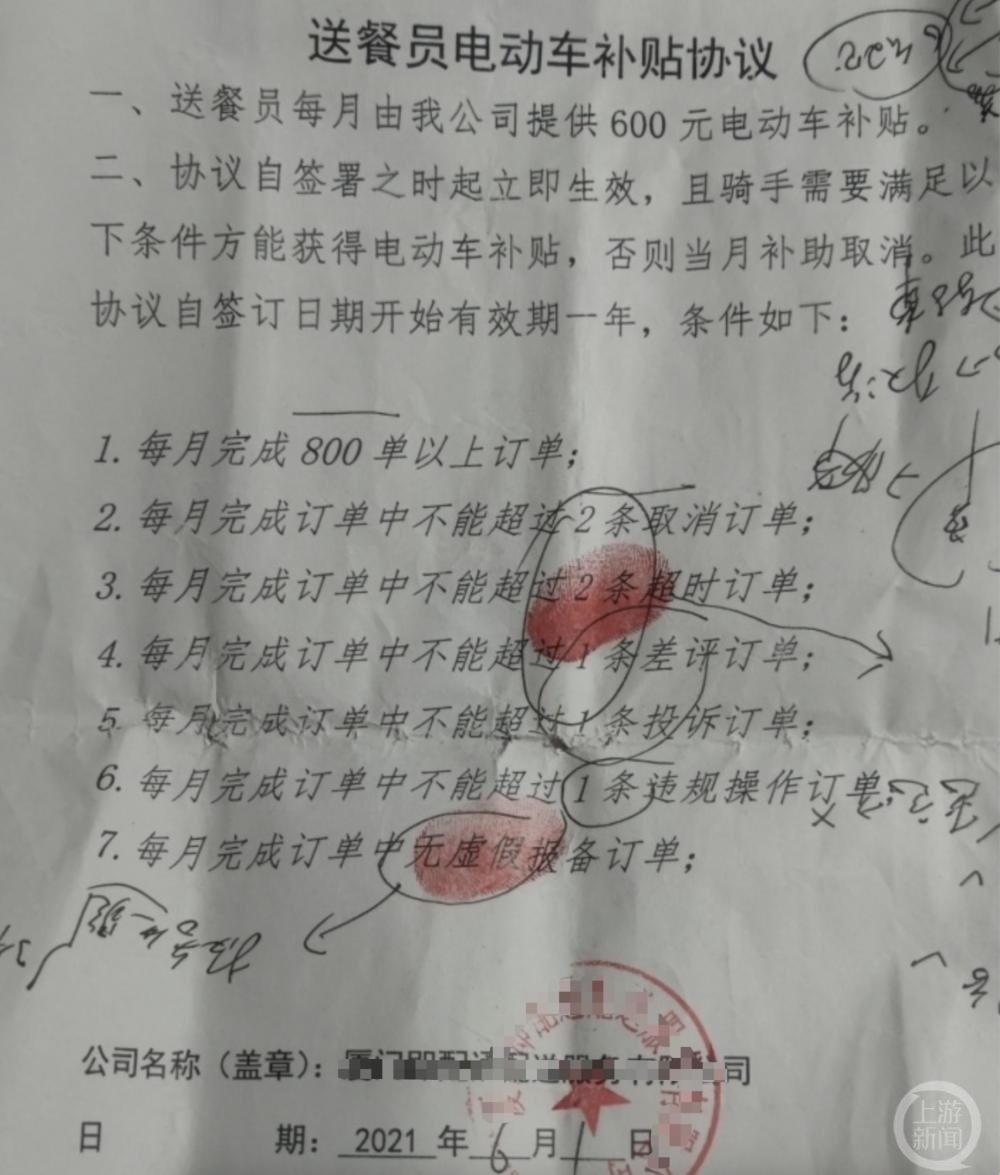 送餐员电动车补贴协议
一、送餐员每月由我公司提供 600 元电动车补贴。
二、协议自签署之时起立即生效，且骑手需要满足以
下条件方能获得电动车补贴，否则当月补助取消。此
协议自签订日期开始有效期一年，条件如下：
1. 每月完成 800 单以上订单；
2. 每月完成订单中不能超过 2 条取消订单；
3. 每月完成订单中不能超过 2 条超时订单；
4. 每月完成订单中不能超过 1 条差评订单；
5. 每月完成订单中不能超过 1 条投诉订单；
6. 每月完成订单中不能超过 1 条违规操作订单；
7. 每月完成订单中无虚假报备订单；
公司名称（盖章）：
日 期： 2021 年 6 月 1 日
上游新闻